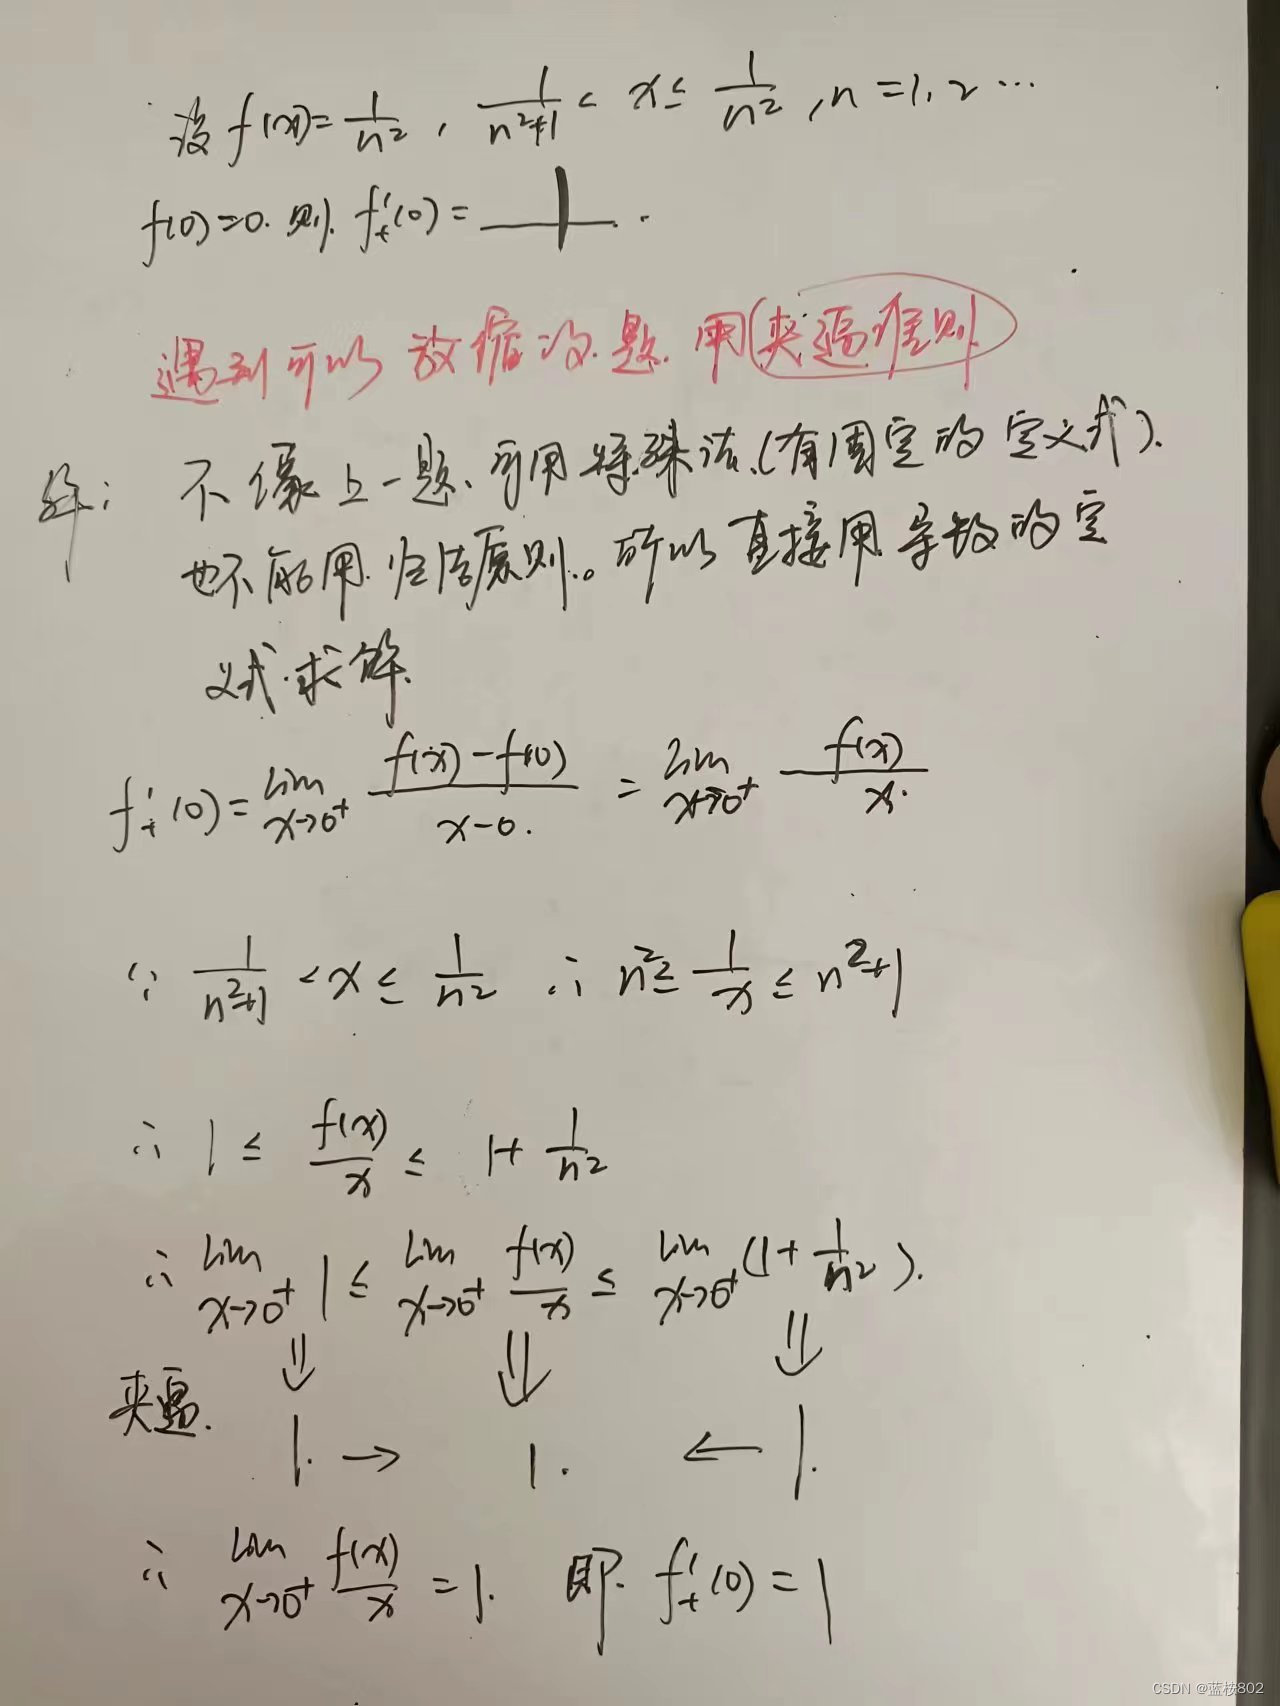 设 f(x)=1/n², 1/(n²+1) < x ≤ 1/n², n=1,2…
f(0)=0. 则 f₊'(0)= 1 .
遇到可以放缩的题. 用(夹逼准则)
解: 不像上一题、可用特殊法.(有固定的定义式).
也不能用.归结原则。所以直接用导数的定
义式.求解.
f₊'(0)=lim x→0⁺ (f(x)-f(0))/(x-0) = lim x→0⁺ f(x)/x
∵ 1/(n²+1) < x ≤ 1/n² ∴ n² ≤ 1/x ≤ n²+1
∴ 1 ≤ f(x)/x ≤ 1+1/n²
∴ lim x→0⁺ 1 ≤ lim x→0⁺ f(x)/x ≤ lim x→0⁺ (1+1/n²).
⇓ ⇓ ⇓
夹逼. 1. → 1. ← 1.
∴ lim x→0⁺ f(x)/x = 1. 即. f₊'(0)=1
CSDN @蓝桉802